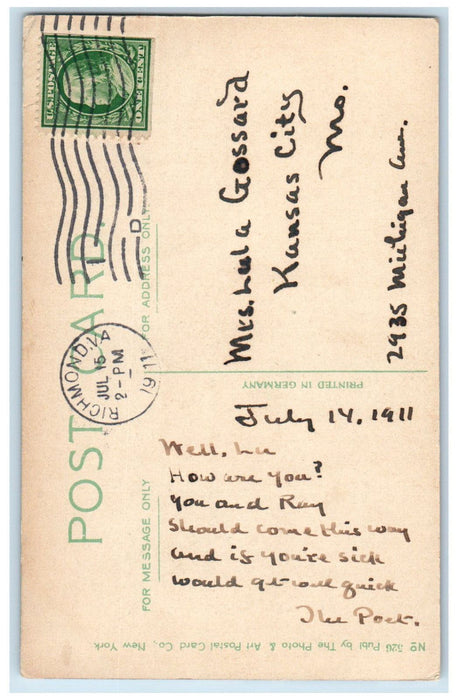 U.S. POSTAGE
ONE CENT
RICHMOND, VA
JUL 15
2-PM
1911
D
POST CARD.
FOR ADDRESS ONLY
Mrs. Lula Gossard
Kansas City
Mo.
2935 Michigan Ave.
PRINTED IN GERMANY
FOR MESSAGE ONLY
July 14, 1911
Well, Lu
How are you?
You and Ray
should come this way
and if you're sick
would get well quick
The Poet.
No 326 Publ by The Photo & Art Postal Card Co., New York